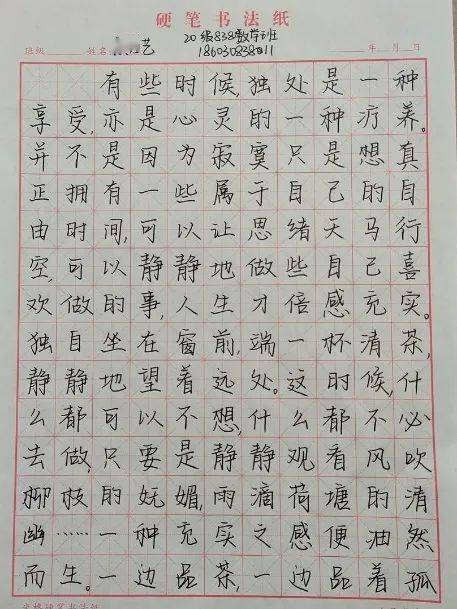 硬笔书法纸
班级 姓名 艺 20级838数学班 年 月 日
18603083811
有些时候,独处是一种
享受,亦是心灵的一种疗养。
并不是因为寂寞只是想真
正拥有一些属于自己的自
由时间,可以让思绪天马行
空,可以静静地做些自己喜
欢做的事,人生才倍感充实。
独自坐在窗前,端一杯清茶,
静静地望着远处。这时候,什
么都可以不想,什么都不必
去做,只要是静静观看风吹
柳枝的妩媚,雨滴荷塘的清
幽……一种充实之感便油然
而生。一边品茶,一边品着孤